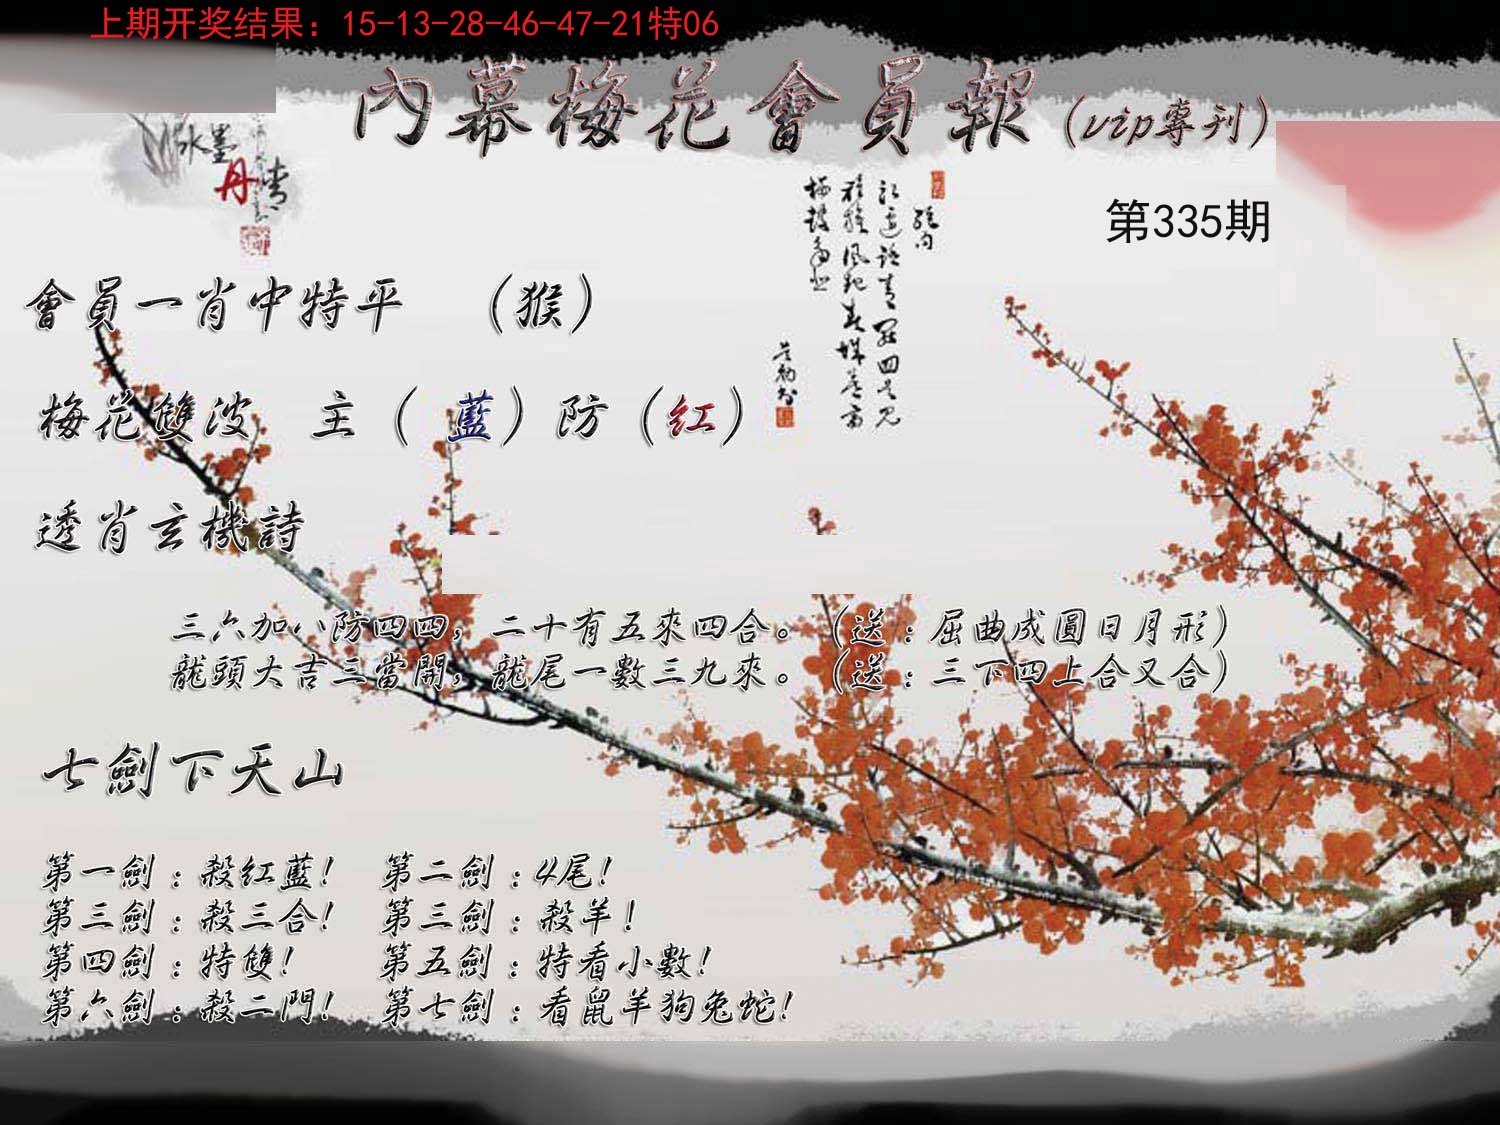 上期开奖结果：15-13-28-46-47-21特06
內幕梅花會員報（vip專刊）
水墨
丹青
第335期
會員一肖中特平　（猴）
梅花雙波　主（ 藍）防（紅）
透肖玄機詩
三六加八防四四，二十有五來四合。（送：屈曲成圓日月形）
龍頭大吉三當開，龍尾一數三九來。（送：三下四上合又合）
七劍下天山
第一劍：殺紅藍！　第二劍：4尾！
第三劍：殺三合！　第三劍：殺羊！
第四劍：特雙！　第五劍：特看小數！
第六劍：殺二門！　第七劍：看鼠羊狗兔蛇！